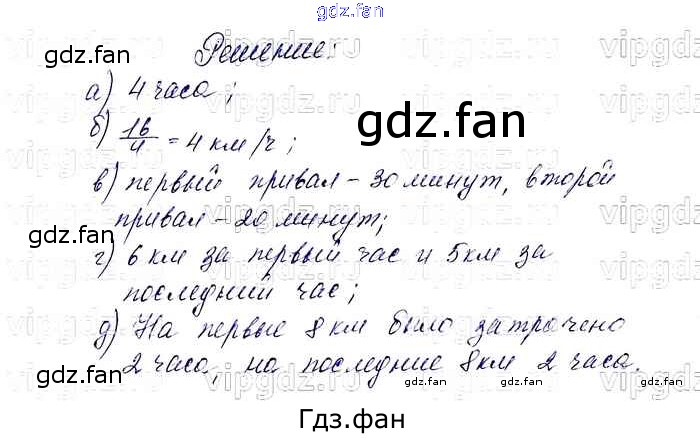 gdz.fan
Решение:
а) 4 часа;
б) 16/4 = 4 км/ч;
в) первый привал - 30 минут, второй
привал - 20 минут;
г) 6 км за первый час и 5 км за
последний час;
д) На первые 8 км было затрачено
2 часа, на последние 8 км 2 часа.
gdz.fan
gdz.fan
gdz.fan
gdz.fan
gdz.fan
gdz.fan
gdz.fan
Гдз.фан